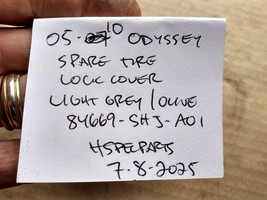 05-10 ODYSSEY
SPARE TIRE
LOCK COVER
LIGHT GREY/OLIVE
84669-SHJ-A01
HSPECPARTS
7-8-2025